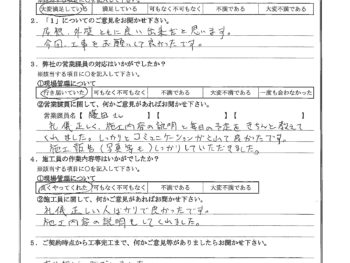 大変満足している 満足している 可もなく不可もなく 不満である 大変不満である
2.「1」についてのご意見をお聞かせ下さい。
屋根、外壁ともに良い出来だと思います。
今回、工事をお願いして良かったです。
3.弊社の営業課員の対応はいかがでしたか？
※該当する項目に○を記入して下さい。
①現場管理について
行き届いていた 可もなく不可もなく 不満である 大変不満である 一度も会わなかった
②営業課員に関して、何かご意見があればお聞かせ下さい。
営業課員名【 】【 】【 】
礼儀正しく、施工内容の説明と毎日の予定をきちんと教えて
くれました。しっかりとコミュニケーションがとれて良かったです。
施工報告(写真等も)しっかりしていただきました。
4.施工員の作業内容等はいかがでしたか？
※該当する項目に○を記入して下さい。
①現場管理について
良くやってくれた 可もなく不可もなく 不満である 大変不満である
②施工員に関して、何かご意見があればお聞かせ下さい。
礼儀正しい人ばかりで良かったです。
施工内容の説明もしてくれました。
5.ご契約時点から工事完工まで、何かご意見等がありましたらお聞かせ下さい。